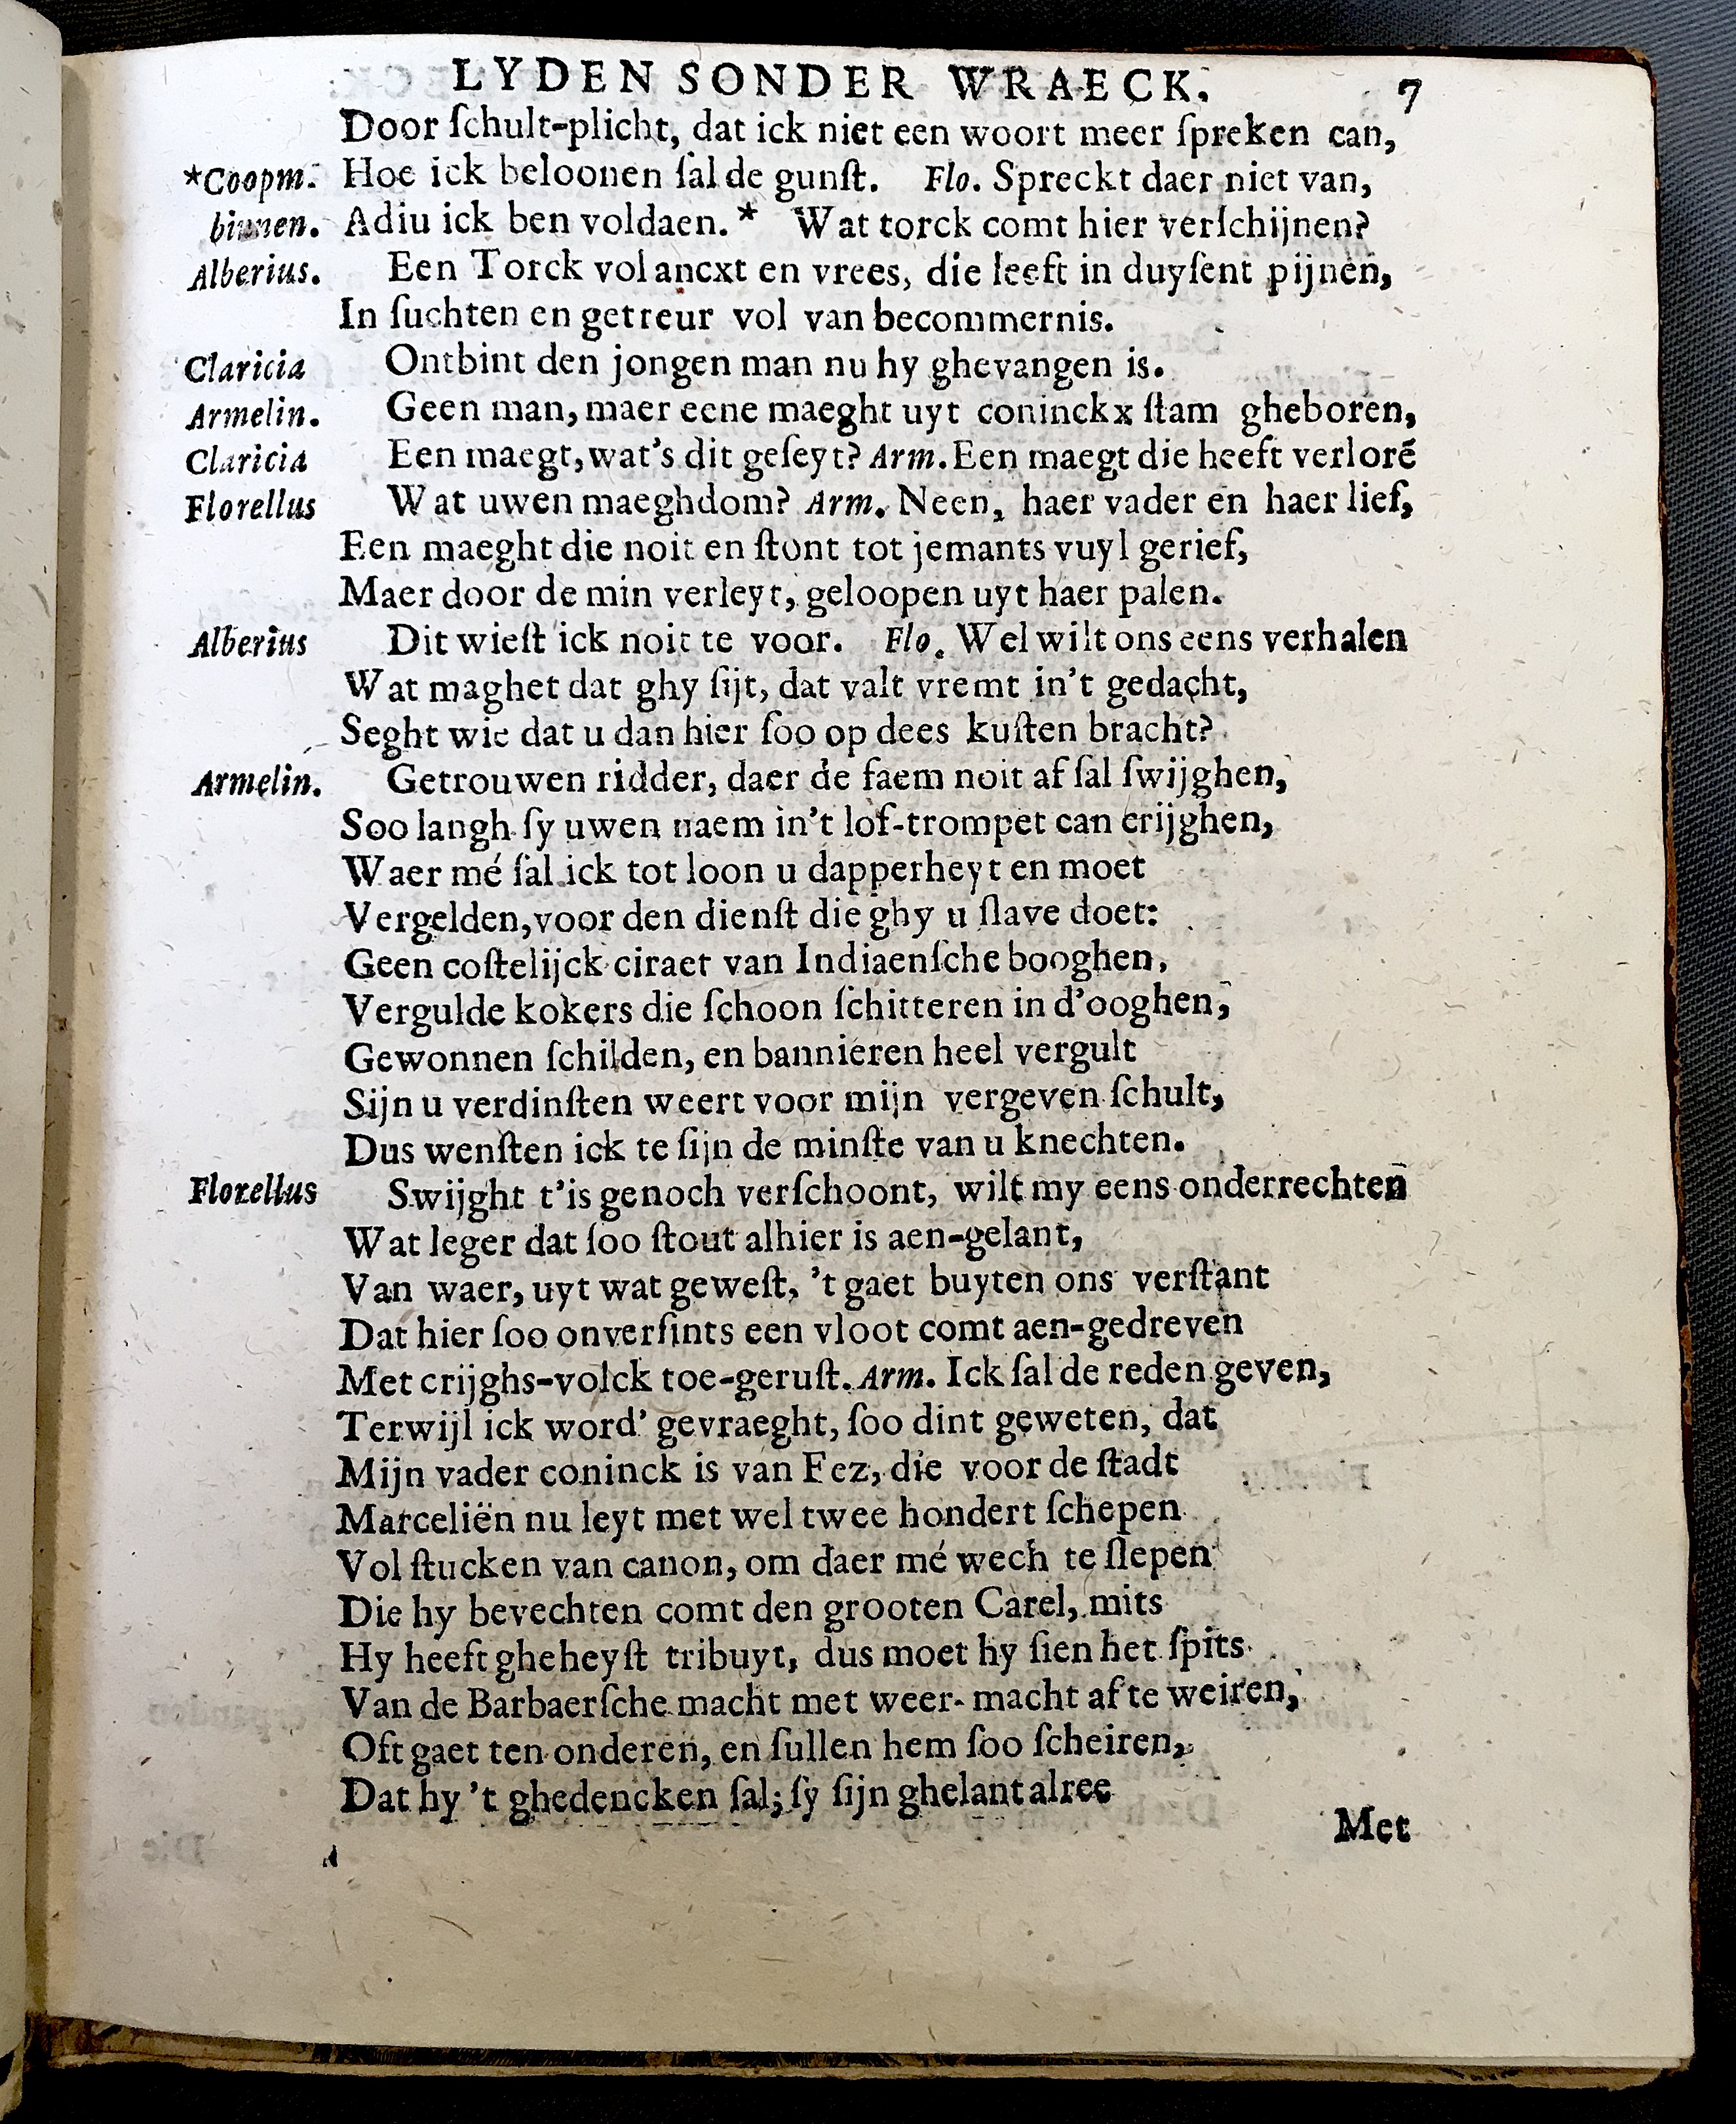 LYDEN SONDER WRAECK. 7
Door ſchult-plicht, dat ick niet een woort meer ſpreken can,
*Coopm. Hoe ick beloonen ſal de gunſt. Flo. Spreckt daer niet van,
binnen. Adiu ick ben voldaen.* Wat torck comt hier verſchijnen?
Alberius. Een Torck vol ancxt en vrees, die leeft in duyſent pijnen,
In ſuchten en getreur vol van becommernis.
Claricia Ontbint den jongen man nu hy ghevangen is.
Armelin. Geen man, maer eene maeght uyt coninckx ſtam gheboren,
Claricia Een maegt, wat's dit geſeyt? Arm. Een maegt die heeft verlorē
Florellus Wat uwen maeghdom? Arm. Neen, haer vader en haer lief,
Een maeght die noit en ſtont tot jemants vuyl gerief,
Maer door de min verleyt, geloopen uyt haer palen.
Alberius Dit wieſt ick noit te voor. Flo. Wel wilt ons eens verhalen
Wat maghet dat ghy ſijt, dat valt vremt in't gedacht,
Seght wie dat u dan hier ſoo op dees kuſten bracht?
Armelin. Getrouwen ridder, daer de faem noit af ſal ſwijghen,
Soo langh ſy uwen naem in't lof-trompet can crijghen,
Waer mé ſal ick tot loon u dapperheyt en moet
Vergelden, voor den dienſt die ghy u ſlave doet:
Geen coſtelijck ciraet van Indiaenſche booghen,
Vergulde kokers die ſchoon ſchitteren in d'ooghen,
Gewonnen ſchilden, en bannieren heel vergult
Sijn u verdinſten weert voor mijn vergeven ſchult,
Dus wenſten ick te ſijn de minſte van u knechten.
Florellus Swijght t'is genoch verſchoont, wilt my eens onderrechten
Wat leger dat ſoo ſtout alhier is aen-gelant,
Van waer, uyt wat geweſt, 't gaet buyten ons verſtant
Dat hier ſoo onverſints een vloot comt aen-gedreven
Met crijghs-volck toe-geruſt. Arm. Ick ſal de reden geven,
Terwijl ick word' gevraeght, ſoo dint geweten, dat
Mijn vader coninck is van Fez, die voor de ſtadt
Marceliën nu leyt met wel twee hondert ſchepen
Vol ſtucken van canon, om daer mé wech te ſlepen
Die hy bevechten comt den grooten Carel, mits
Hy heeft gheheyſt tribuyt, dus moet hy ſien het ſpits
Van de Barbaerſche macht met weer-macht af te weiren,
Oft gaet ten onderen, en ſullen hem ſoo ſcheiren,
Dat hy 't ghedencken ſal; ſy ſijn ghelant alree
Met